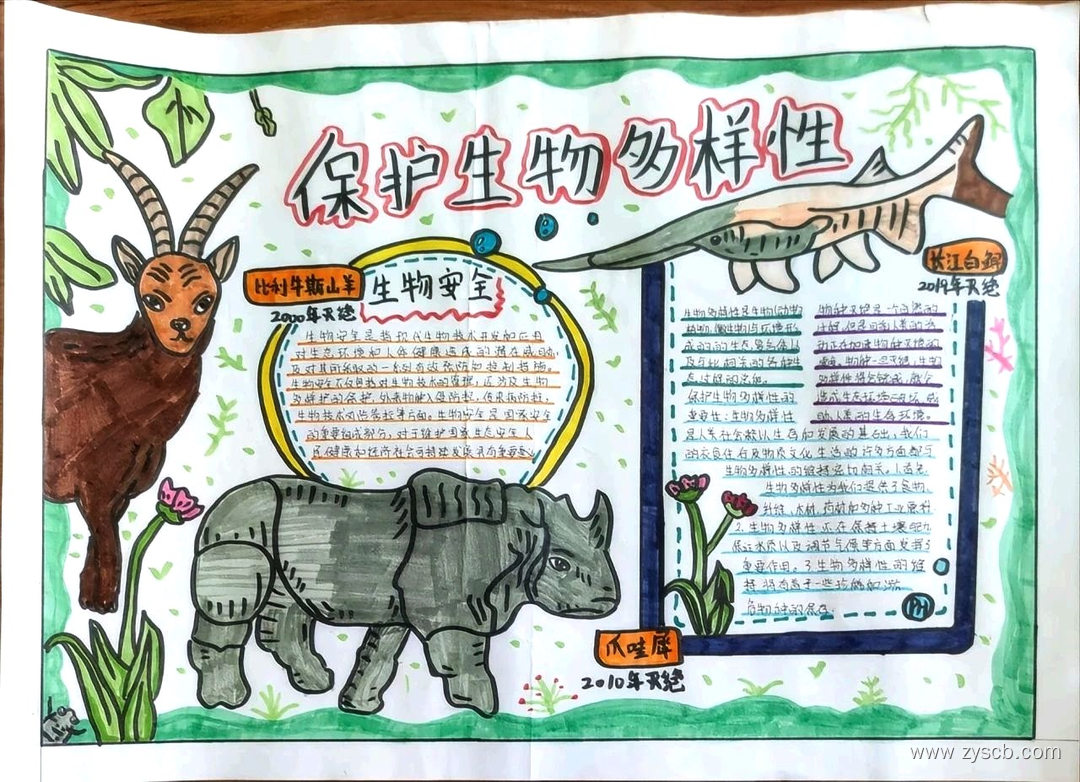 保护生物多样性
比利牛斯山羊
2000年灭绝
生物安全
生物安全是指现代生物技术开发和应用
对生态环境和人体健康造成的潜在威胁,
及对其所采取的一系列有效预防和控制措施。
生物安全不仅是指对生物技术的管理,还涉及生物
多样性的保护、外来物种入侵防控、传染病防控、
生物技术的监管等方面。生物安全是国家安全
的重要组成部分,对于维护国家生态安全人
民健康和经济社会可持续发展具有重要意义
长江白鲟
2019年灭绝
生物多样性是生物(动物
植物、微生物)与环境形
成的生态复合体以
及与此相关的各种生
态过程的总和。
保护生物多样性的
重要性:生物多样性
是人类社会赖以生存和发展的基础,我们
的衣食住行及物质文化生活的许多方面都与
生物多样性的维持密切相关。1.首先,
生物多样性为我们提供了食物、
纤维、木材、药材和多种工业原料
2.生物多样性还在保持土壤肥力
保证水质以及调节气候等方面发挥了
重要作用。3.生物多样性的维
持将有益于一些珍稀和濒
危物种的保存。
物种灭绝是一个自然的
过程,但是目前人类的活
动正在加速物种灭绝的
速度。物种一旦灭绝,生物
多样性将会
造成生态环境的破坏,威
胁人类的生存环境。
爪哇犀
2010年灭绝
www.zyscb.com